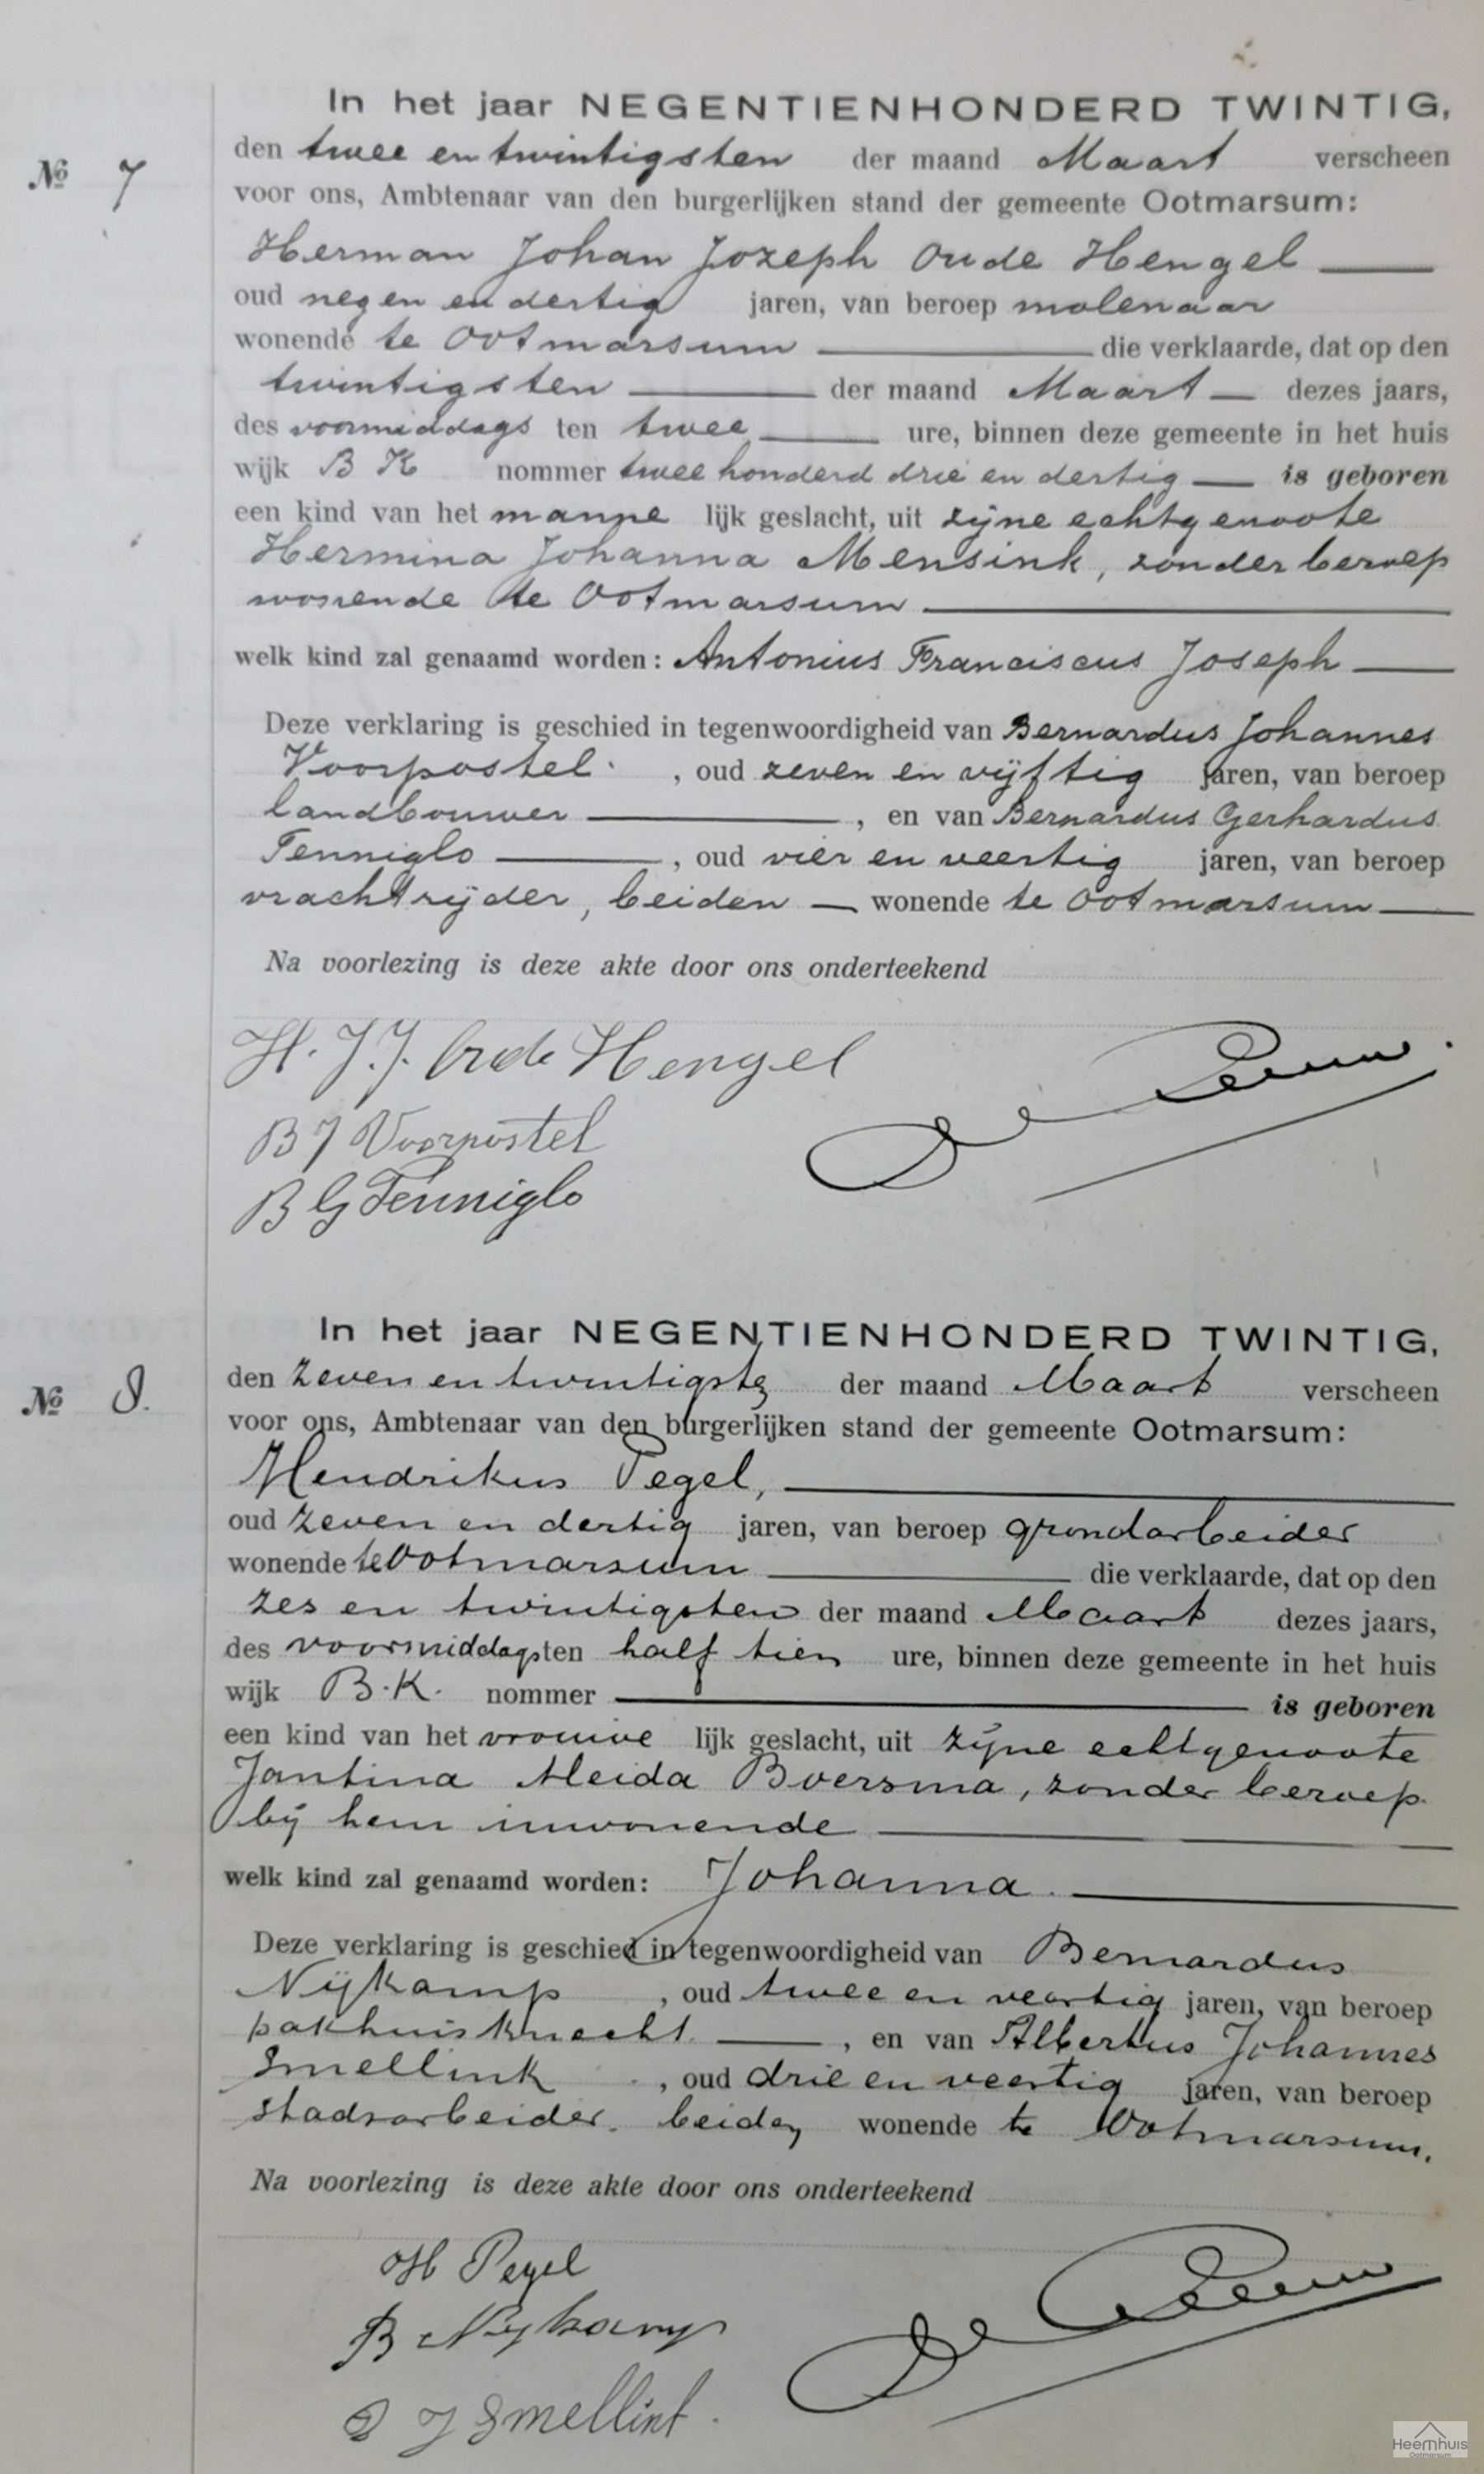 In het jaar NEGENTIENHONDERD TWINTIG,
den twee en twintigsten der maand Maart verscheen
Nº 7
voor ons, Ambtenaar van den burgerlijken stand der gemeente Ootmarsum:
Herman Johan Jozeph Oude Hengel
oud negen en dertig jaren, van beroep molenaar
wonende te Ootmarsum die verklaarde, dat op den
twintigsten der maand Maart dezes jaars,
des voormiddags ten twee ure, binnen deze gemeente in het huis
wijk B K nommer twee honderd drie en dertig is geboren
een kind van het manne lijk geslacht, uit zijne echtgenoote
Hermina Johanna Mensink, zonder beroep
wonende te Ootmarsum
welk kind zal genaamd worden: Antonius Franciscus Joseph
Deze verklaring is geschied in tegenwoordigheid van Bernardus Johannes
Voorpostel, oud zeven en vijftig jaren, van beroep
landbouwer, en van Bernardus Gerhardus
Tenniglo, oud vier en veertig jaren, van beroep
vrachtrijder, beiden wonende te Ootmarsum
Na voorlezing is deze akte door ons onderteekend
H. J. J. Oude Hengel
B J Voorpostel
B G Tenniglo
De Leeuw.
In het jaar NEGENTIENHONDERD TWINTIG,
den zeven en twintigste der maand Maart verscheen
Nº 8.
voor ons, Ambtenaar van den burgerlijken stand der gemeente Ootmarsum:
Hendrikus Pegel,
oud zeven en dertig jaren, van beroep grondarbeider
wonende te Ootmarsum die verklaarde, dat op den
zes en twintigsten der maand Maart dezes jaars,
des voormiddags ten half tien ure, binnen deze gemeente in het huis
wijk B.K. nommer is geboren
een kind van het vrouwe lijk geslacht, uit zijne echtgenoote
Jantina Aleida Boersma, zonder beroep.
bij hem inwonende
welk kind zal genaamd worden: Johanna.
Deze verklaring is geschied in tegenwoordigheid van Bernardus
Nijkamp, oud twee en veertig jaren, van beroep
pakhuisknecht, en van Albertus Johannes
Smellink, oud drie en veertig jaren, van beroep
stadsarbeider. beiden wonende te Ootmarsum.
Na voorlezing is deze akte door ons onderteekend
H Pegel
B Nijkamp
J Smellink.
De Leeuw
Heemhuis
Ootmarsum